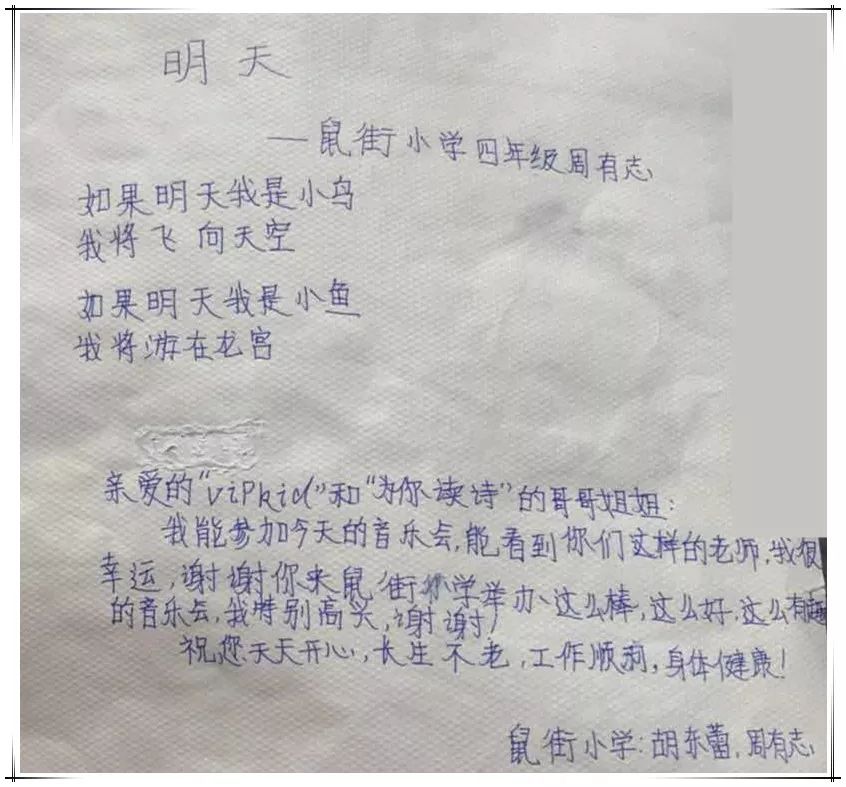 明天
——鼠街小学四年级周有志
如果明天我是小鸟
我将飞向天空
如果明天我是小鱼
我将游在龙宫
亲爱的“vipkid”和“为你读诗”的哥哥姐姐：
我能参加今天的音乐会，能看到你们这样的老师，我很
幸运，谢谢你来鼠街小学举办这么棒，这么好，这么有趣
的音乐会，我特别高兴，谢谢！
祝您天天开心，长生不老，工作顺利，身体健康！
鼠街小学：胡东蕾，周有志